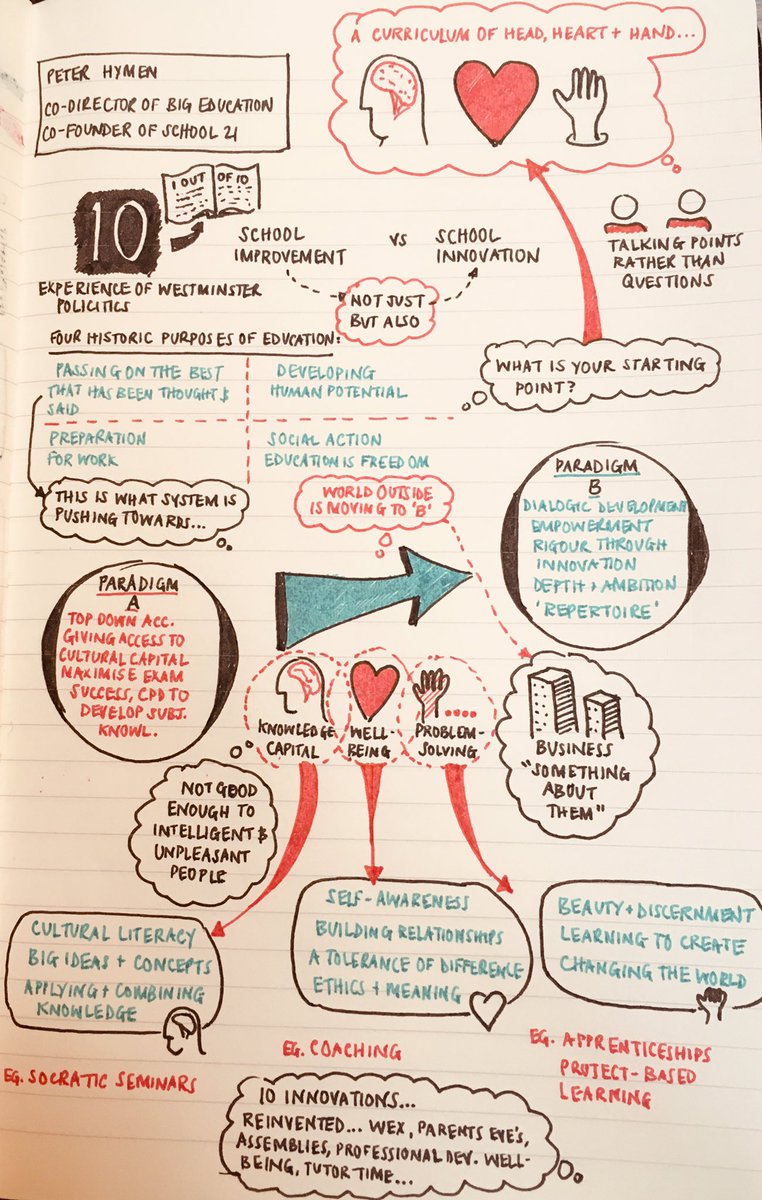 PETER HYMEN
CO-DIRECTOR OF BIG EDUCATION
CO-FOUNDER OF SCHOOL 21
A CURRICULUM OF HEAD, HEART + HAND...
1 OUT OF 10
10
EXPERIENCE OF WESTMINSTER
POLICITICS
SCHOOL
IMPROVEMENT
VS
SCHOOL
INNOVATION
NOT JUST
BUT ALSO
TALKING POINTS
RATHER THAN
QUESTIONS
WHAT IS YOUR STARTING
POINT?
FOUR HISTORIC PURPOSES OF EDUCATION:
PASSING ON THE BEST
THAT HAS BEEN THOUGHT &
SAID
DEVELOPING
HUMAN POTENTIAL
PREPARATION
FOR WORK
SOCIAL ACTION
EDUCATION IS FREEDOM
THIS IS WHAT SYSTEM IS
PUSHING TOWARDS...
WORLD OUTSIDE
IS MOVING TO 'B'
PARADIGM
B
DIALOGIC DEVELOPMENT
EMPOWERMENT
RIGOUR THROUGH
INNOVATION
DEPTH + AMBITION
'REPERTOIRE'
PARADIGM
A
TOP DOWN ACC.
GIVING ACCESS TO
CULTURAL CAPITAL
MAXIMISE EXAM
SUCCESS, CPD TO
DEVELOP SUBJ.
KNOWL.
KNOWLEDGE
CAPITAL
WELL-
BEING
PROBLEM-
SOLVING
BUSINESS
"SOMETHING
ABOUT
THEM"
NOT GOOD
ENOUGH TO
INTELLIGENT &
UNPLEASANT
PEOPLE
CULTURAL LITERACY
BIG IDEAS + CONCEPTS
APPLYING + COMBINING
KNOWLEDGE
EG. SOCRATIC SEMINARS
SELF-AWARENESS
BUILDING RELATIONSHIPS
A TOLERANCE OF DIFFERENCE
ETHICS + MEANING
EG. COACHING
BEAUTY + DISCERNMENT
LEARNING TO CREATE
CHANGING THE WORLD
EG. APPRENTICESHIPS
PROJECT-BASED
LEARNING
10 INNOVATIONS...
REINVENTED... WEX, PARENTS EVE'S,
ASSEMBLIES, PROFESSIONAL DEV. WELL-
BEING, TUTOR TIME...